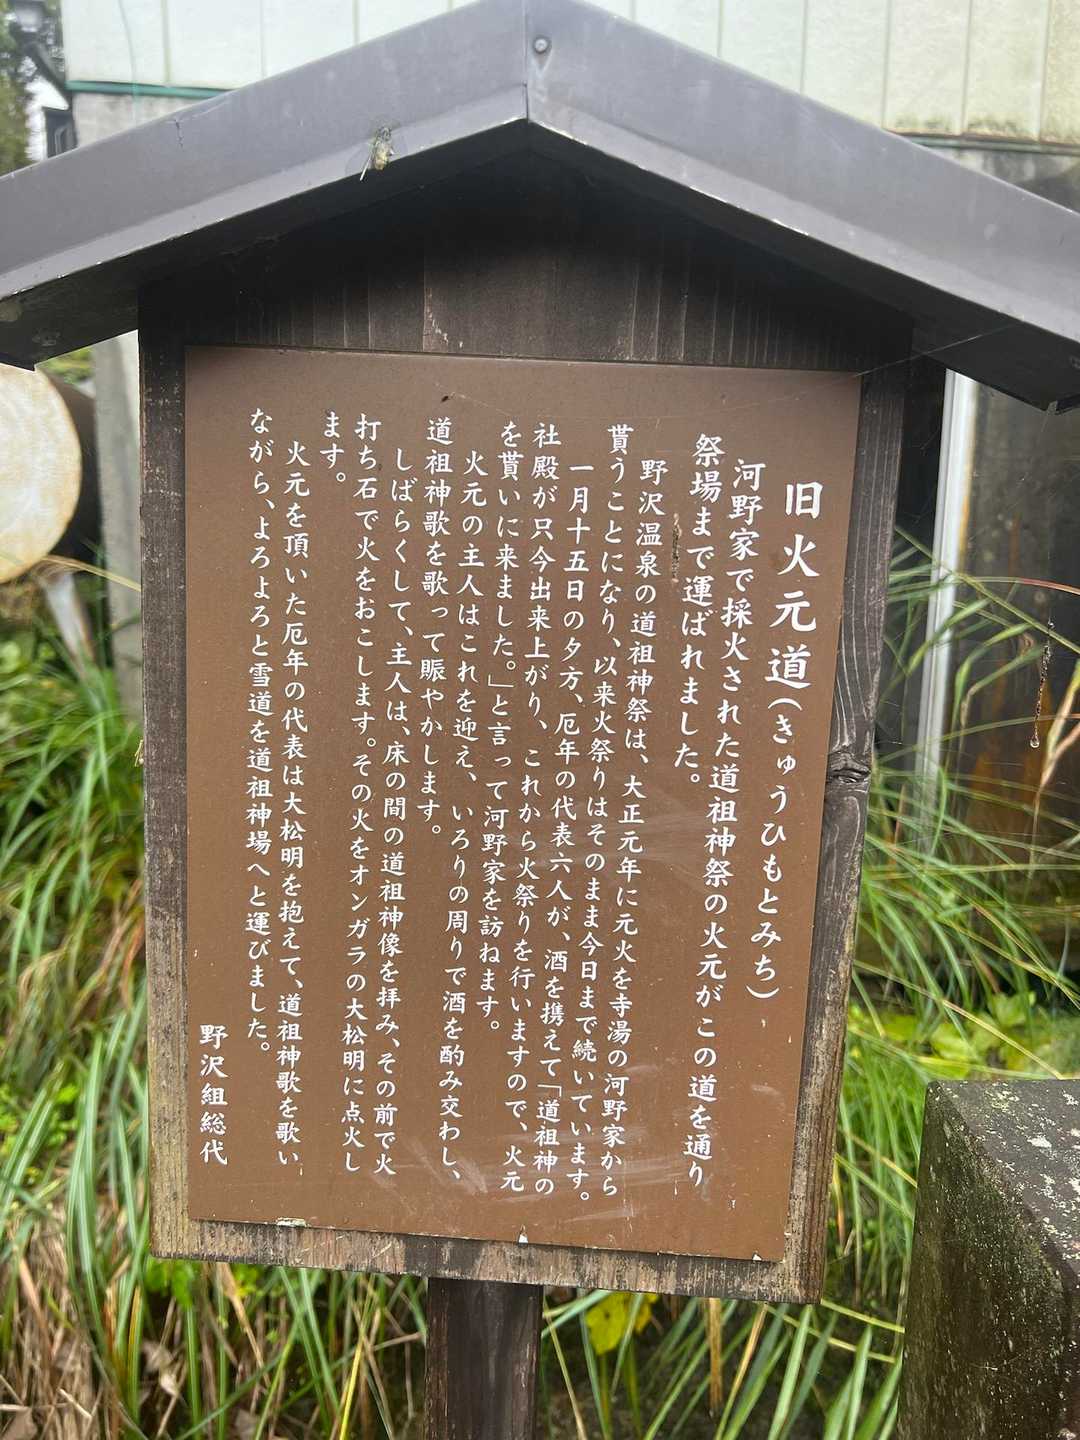 旧火元道(きゅうひもとみち)
河野家で採火された道祖神祭の火元がこの道を通り
祭場まで運ばれました。
野沢温泉の道祖神祭は、大正元年に元火を寺湯の河野家から
貰うことになり、以来火祭りはそのまま今日まで続いています。
一月十五日の夕方、厄年の代表六人が、酒を携えて「道祖神の
社殿が只今出来上がり、これから火祭りを行いますので、火元
を貰いに来ました。」と言って河野家を訪ねます。
火元の主人はこれを迎え、いろりの周りで酒を酌み交わし、
道祖神歌を歌って賑やかします。
しばらくして、主人は、床の間の道祖神像を拝み、その前で火
打ち石で火をおこします。その火をオンガラの大松明に点火し
ます。
火元を頂いた厄年の代表は大松明を抱えて、道祖神歌を歌い
ながら、よろよろと雪道を道祖神場へと運びました。
野沢組総代